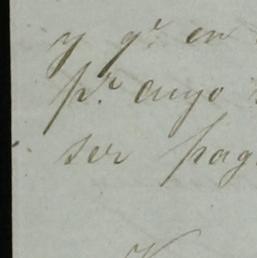 y qᵉ en
pʳ cuyo
ser pag